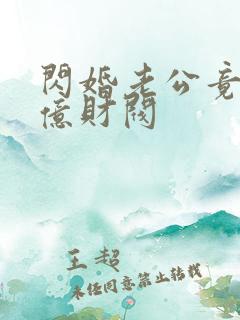 閃婚老公竟
億財閥
王超
未经同意禁止转载